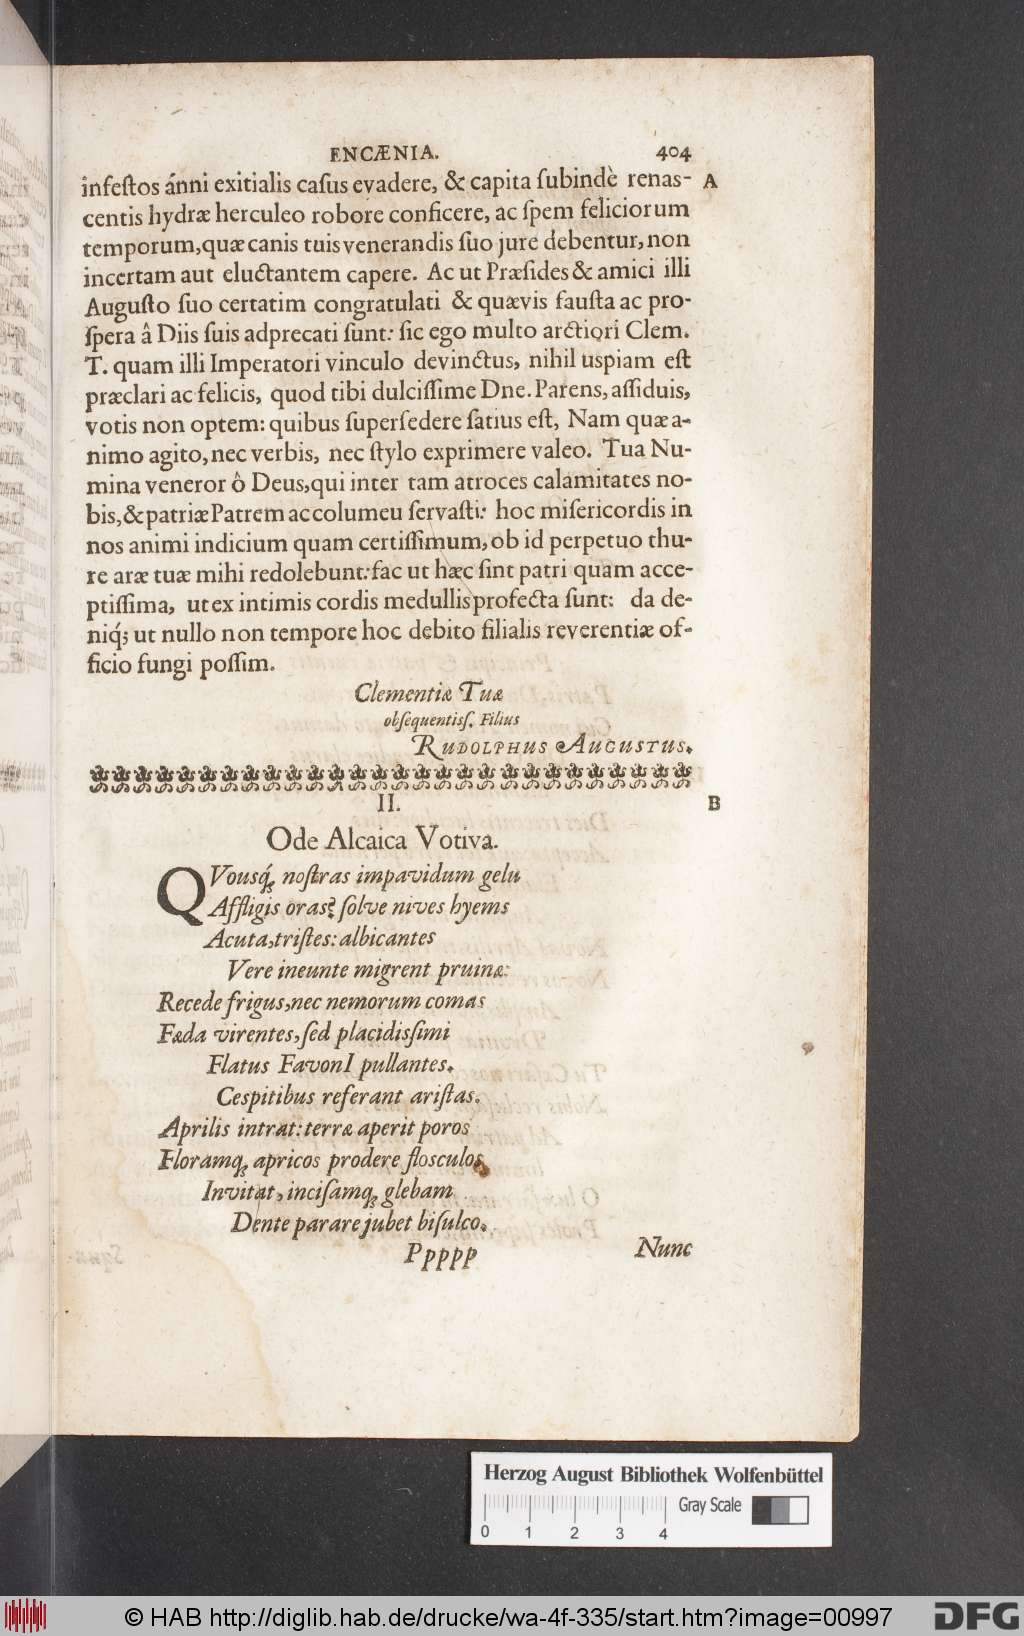 ENCÆNIA. 404
infeſtos ánni exitialis caſus evadere, & capita ſubindè renaſ- A
centis hydræ herculeo robore conficere, ac ſpem feliciorum
temporum, quæ canis tuis venerandis ſuo jure debentur, non
incertam aut eluctantem capere. Ac ut Præſides & amici illi
Auguſto ſuo certatim congratulati & quævis fauſta ac pro-
ſpera â Diis ſuis adprecati ſunt: ſic ego multo arctiori Clem.
T. quam illi Imperatori vinculo devinctus, nihil uspiam eſt
præclari ac felicis, quod tibi dulciſſime Dne. Parens, aſſiduis,
votis non optem: quibus ſuperſedere ſatius eſt, Nam quæ a-
nimo agito, nec verbis, nec ſtylo exprimere valeo. Tua Nu-
mina veneror ô Deus, qui inter tam atroces calamitates no-
bis, & patriæ Patrem ac columeu ſervaſti: hoc miſericordis in
nos animi indicium quam certiſſimum, ob id perpetuo thu-
re aræ tuæ mihi redolebunt: fac ut hæc ſint patri quam acce-
ptiſſima, ut ex intimis cordis medullis profecta ſunt: da de-
niq́; ut nullo non tempore hoc debito filialis reverentiæ of-
ficio fungi poſſim.
Clementiæ Tuæ
obſequentiſſ. Filius
RUDOLPHUS AUGUSTUS.
II. B
Ode Alcaica Votiva.
QVousq́; noſtras impavidum gelu
Affligis oras? ſolve nives hyems
Acuta, triſtes: albicantes
Vere ineunte migrent pruinæ:
Recede frigus, nec nemorum comas
Fæda virentes, ſed placidisſimi
Flatus FavonI pullantes.
Cespitibus referant ariſtas.
Aprilis intrat: terræ aperit poros
Floramq; apricos prodere floſculos
Invitat, inciſamq; glebam
Dente parare jubet biſulco.
Ppppp Nunc
Herzog August Bibliothek Wolfenbüttel
Gray Scale
0 1 2 3 4
© HAB http://diglib.hab.de/drucke/wa-4f-335/start.htm?image=00997 DFG